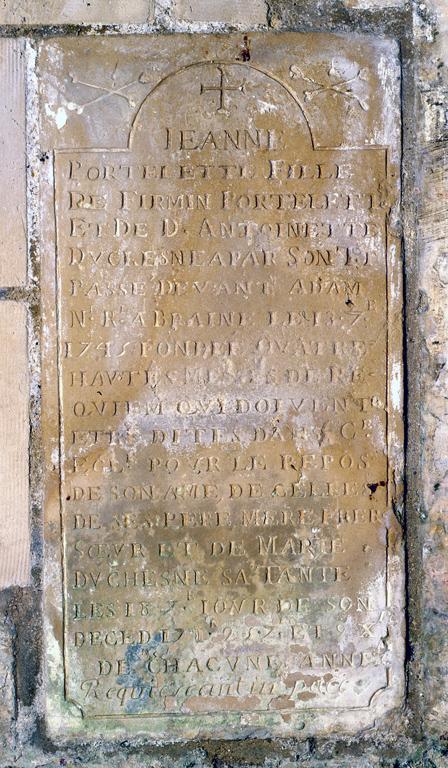 IEANNE
PORTELETTE FILLE
DE FIRMIN PORTELETT
ET DE D. ANTOINETTE
DVCHESNE A PAR SON T
PASSÉ DEVANT ADAM
N.R. A BRAINE LE 13 7
1745 FONDÉE QVATRE
HAVTES MESSES DE RE
QVIEM QVI DOIVENT
ETRE DITES DANS C
EGL POVR LE REPOS
DE SON AME DE CELLES
DE SES PERE MERE FRER
SŒVR ET DE MARIE
DVCHESNE SA TANTE
LES 18 7 IOVR DE SON
DECED ET
DE CHACVNE ANNE
Requiescant in pace